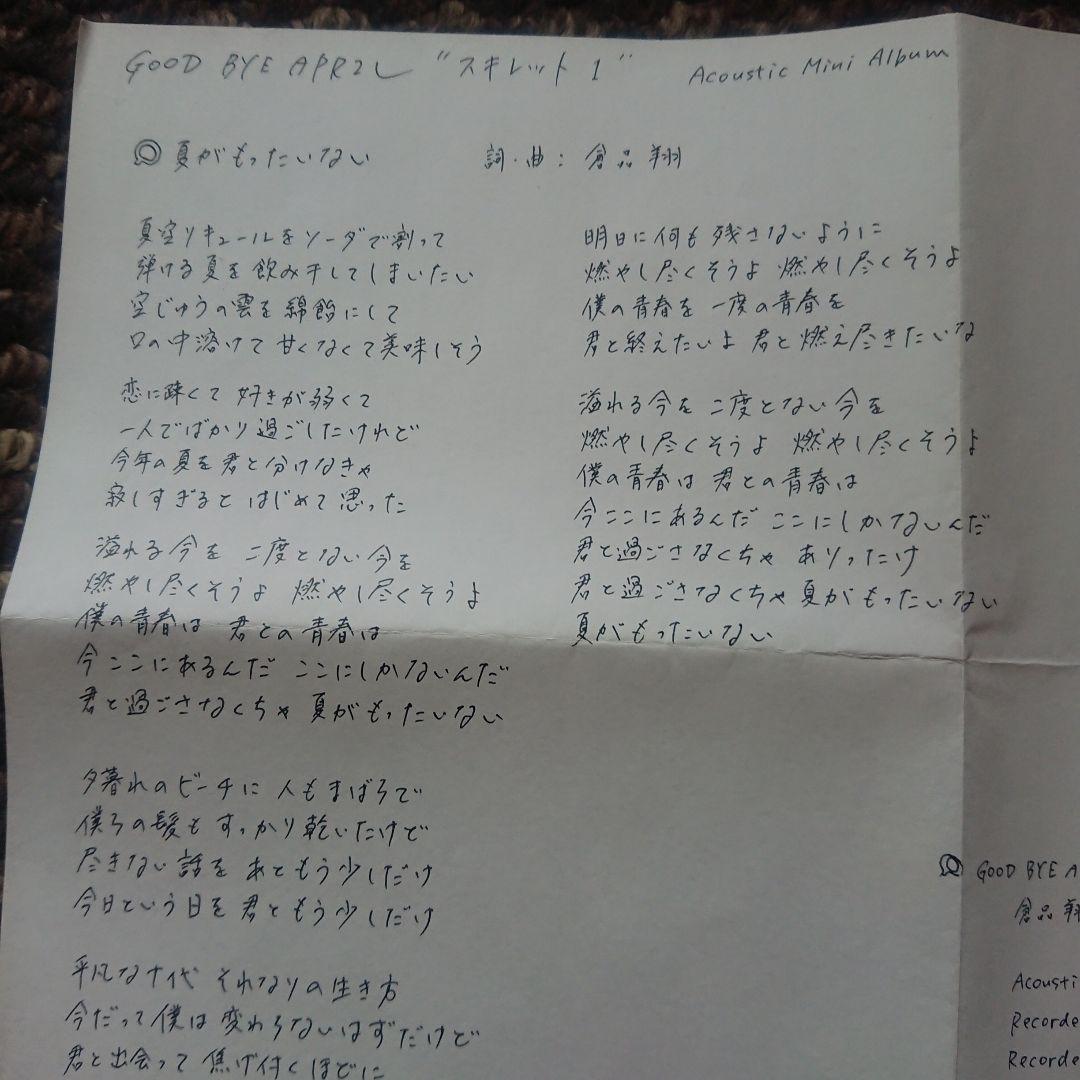 GOOD BYE APRIL "スキレット1" Acoustic Mini Album
夏がもったいない 詞・曲: 倉品 翔
夏空リキュールをソーダで割って
弾ける夏を飲み干してしまいたい
空じゅうの雲を綿飴にして
口の中溶けて 甘くなくて美味しそう
恋に疎くて 好きが弱くて
一人でばかり過ごしたけれど
今年の夏を君と分けなきゃ
寂しすぎるとはじめて思った
溢れる今を 二度とない今を
燃やし尽くそうよ 燃やし尽くそうよ
僕の青春は 君との青春は
今ここにあるんだ ここにしかないんだ
君と過ごさなくちゃ 夏がもったいない
夕暮れのビーチに 人もまばらで
僕らの髪も すっかり乾いたけど
尽きない話を あともう少しだけ
今日という日を 君ともう少しだけ
平凡な十代 それなりの生き方
今だって僕は変わらないはずだけど
君と出会って 焦げ付くほどに
明日に何も残さないように
燃やし尽くそうよ 燃やし尽くそうよ
僕の青春を 一度の青春を
君と終えたいよ 君と燃え尽きたいな
溢れる今を 二度とない今を
燃やし尽くそうよ 燃やし尽くそうよ
僕の青春は 君との青春は
今ここにあるんだ ここにしかないんだ
君と過ごさなくちゃ ありったけ
君と過ごさなくちゃ 夏がもったいない
夏がもったいない
GOOD BYE A
倉品 翔
Acousti
Recorde
Recorde